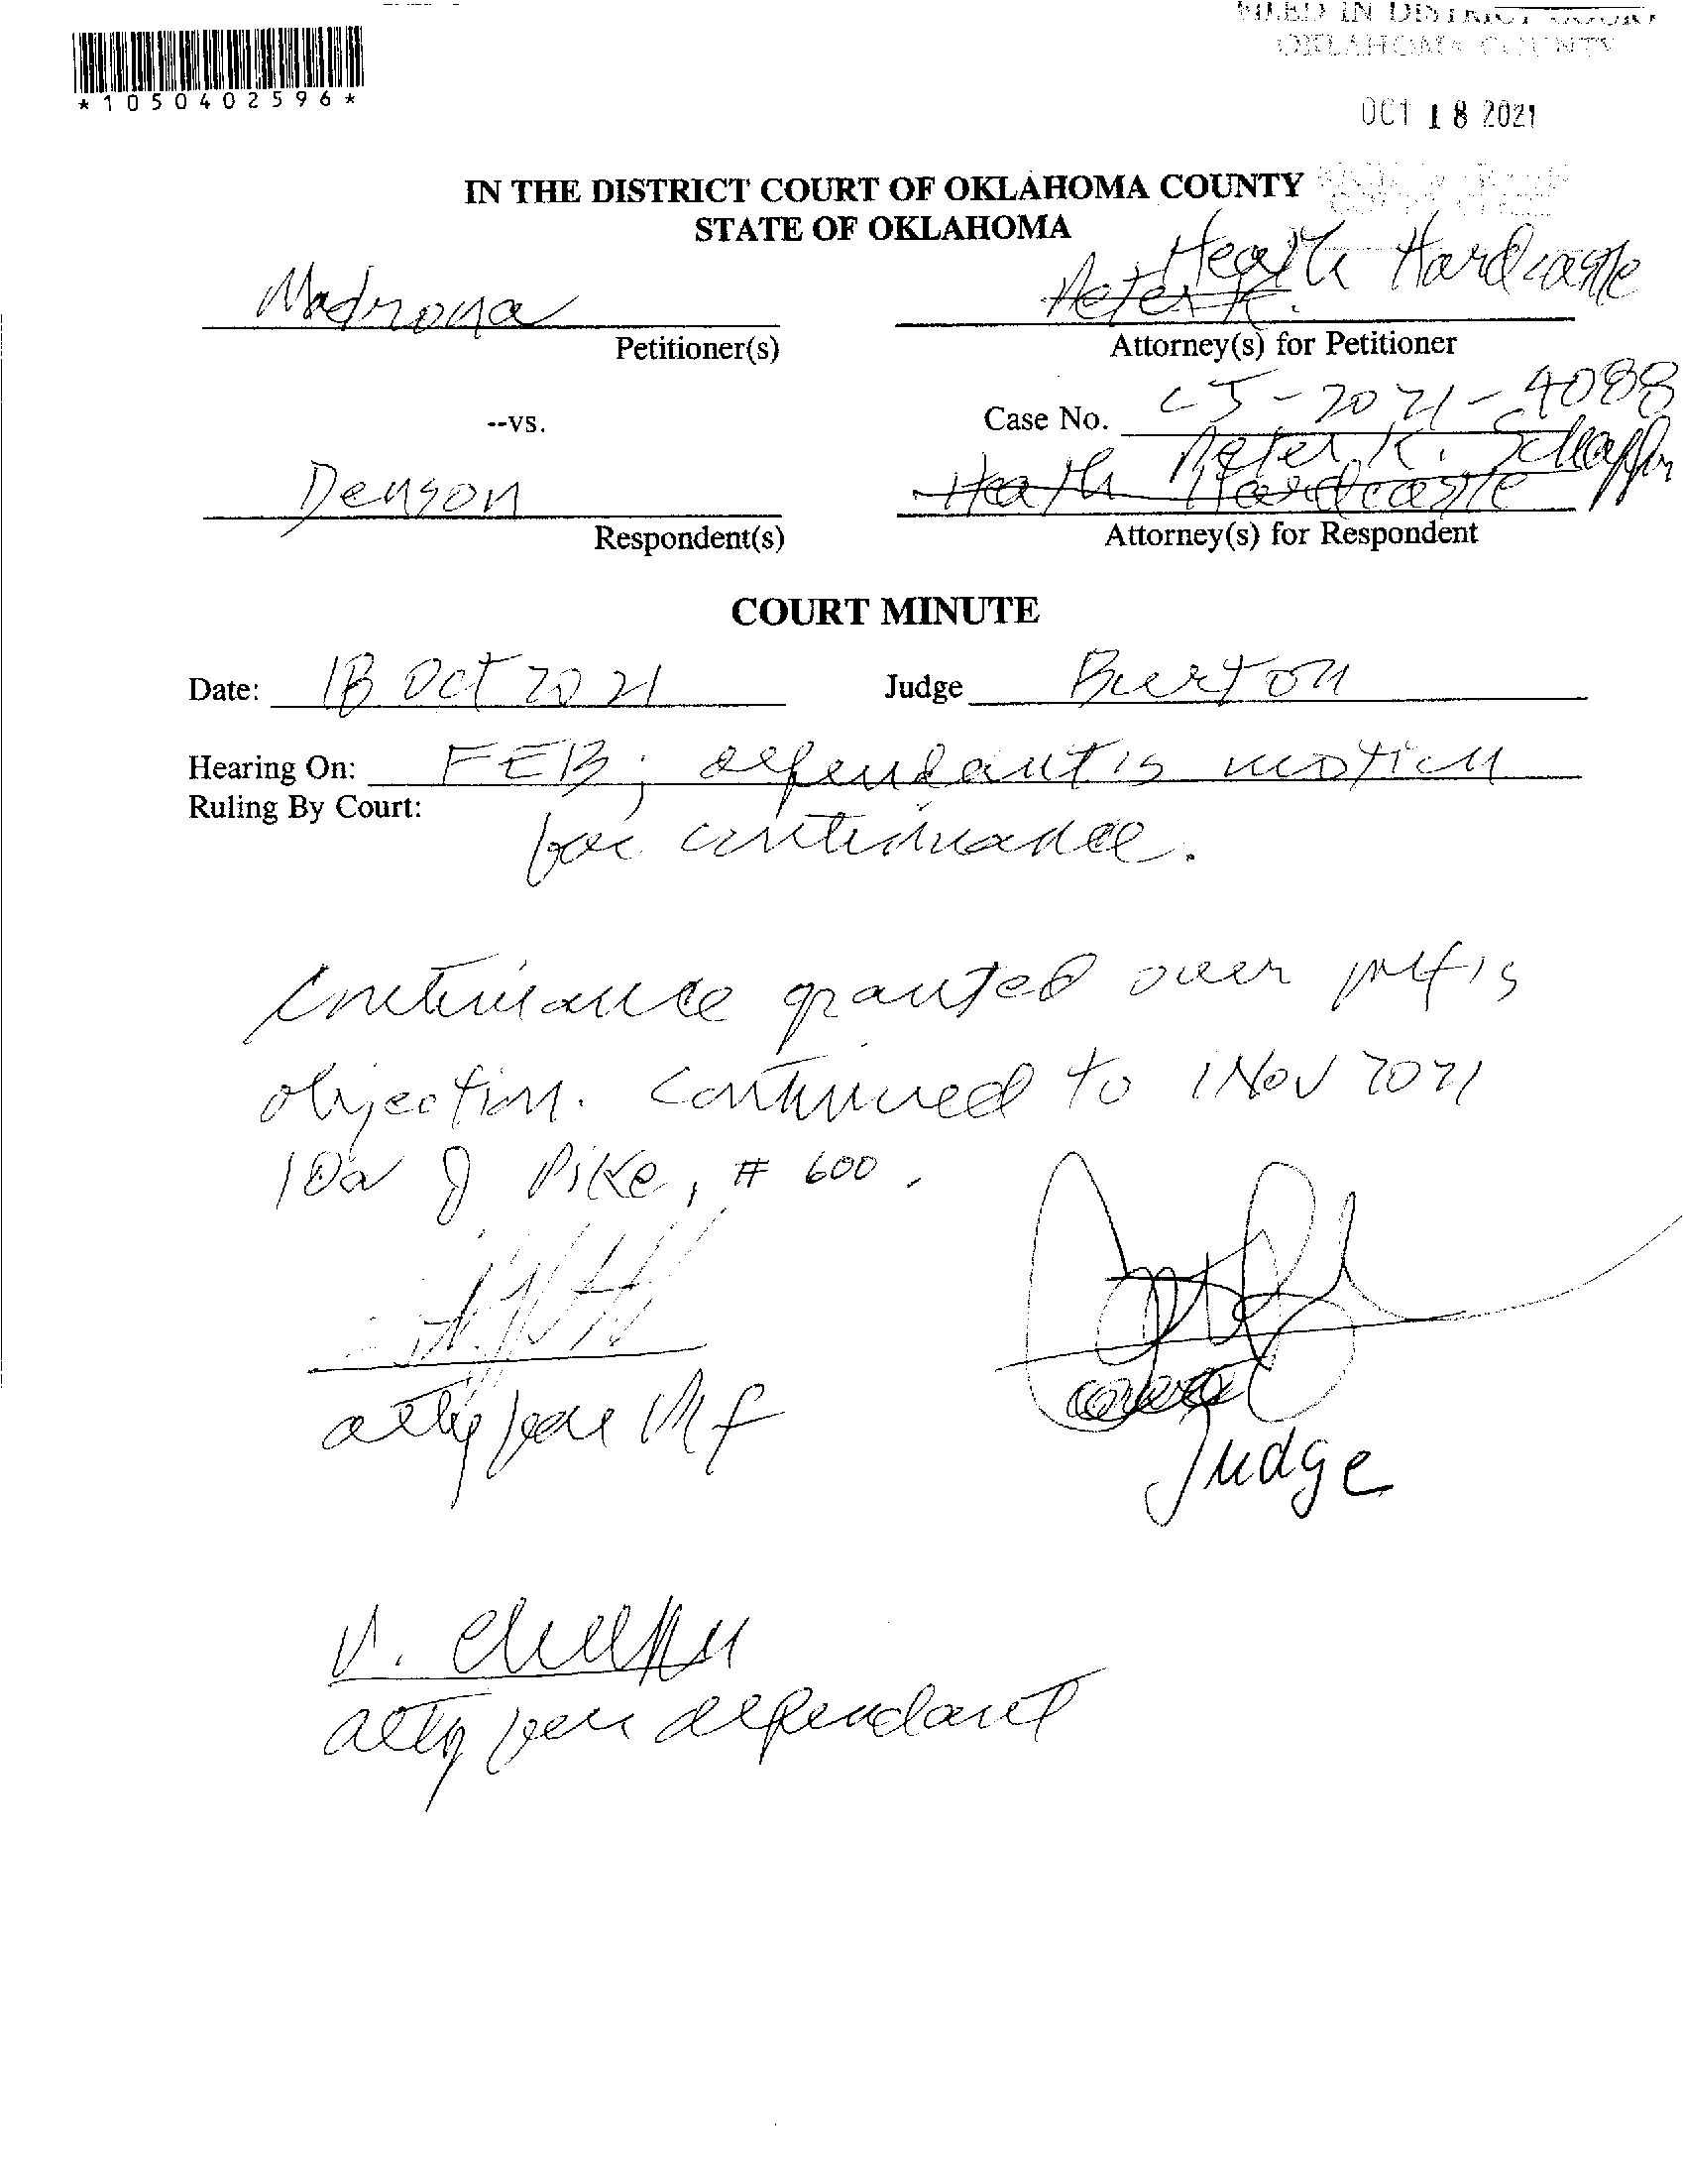 FILED IN DISTRICT COURT
OKLAHOMA COUNTY
*1050402596*
OCT 18 2021
IN THE DISTRICT COURT OF OKLAHOMA COUNTY
STATE OF OKLAHOMA
Heath Hardcastle
Madrona Peter K.
Petitioner(s) Attorney(s) for Petitioner
--vs. Case No. CJ-2021-4088
Peter K. Schaffer
Denson Heath Hardcastle
Respondent(s) Attorney(s) for Respondent
COURT MINUTE
Date: 18 Oct 2021 Judge Burton
Hearing On: FEB; defendant's motion
Ruling By Court:
for continuance.
Continuance granted over pltf's
objection. Continued to 1 Nov 2021
10a J Pike, # 600.
atty for Pltf
Judge
V.
atty for defendant